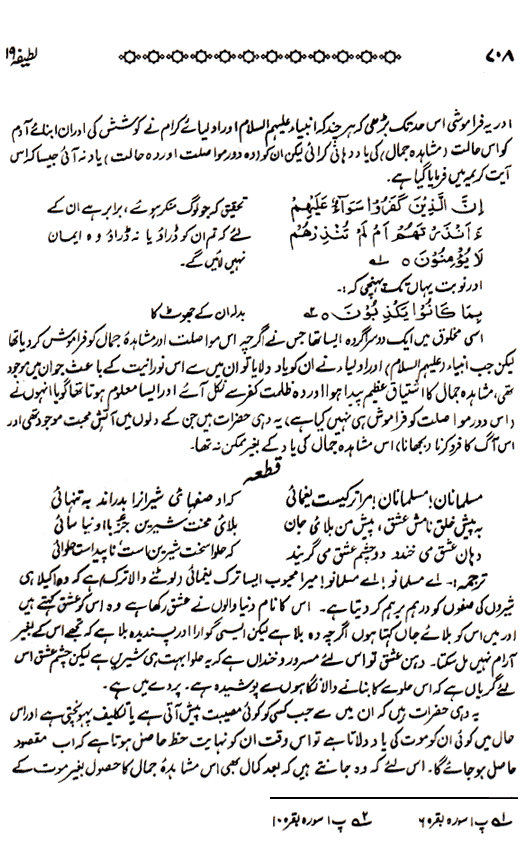 ۷۰۸
لطیفہ ۱۹
اور یہ فراموشی اس حد تک بڑھی کہ ہر چند کہ انبیاء علیہم السلام اور اولیائے کرام نے کوشش کی اور ان ابنائے آدم
کو اس حالت (مشاہدہ جمال) کی یاد دہانی کرائی لیکن ان کو (وہ دور مواصلت اور وہ حالت) یاد نہ آئی جیسا کہ اس
آیت کریمہ میں فرمایا گیا ہے۔
اِنَّ الَّذِیْنَ کَفَرُوْا سَوَآءٌ عَلَیْهِمْ تحقیق کہ جو لوگ منکر ہوئے، برابر ہے ان کے
ءَاَنْذَرْتَهُمْ اَمْ لَمْ تُنْذِرْهُمْ لئے کہ تم ان کو ڈراؤ یا نہ ڈراؤ وہ ایمان
لَا یُؤْمِنُوْنَ ٥ ؎۱ نہیں لائیں گے۔
اور نوبت یہاں تک پہنچی کہ:۔
بِمَا کَانُوْا یَکْذِبُوْنَ ٥ ؎۲ بدلہ ان کے جھوٹ کا
اسی مخلوق میں ایک دوسرا گروہ ایسا تھا جس نے اگرچہ اس مواصلت اور مشاہدۂ جمال کو فراموش کر دیا تھا
لیکن جب انبیاء (علیہم السلام) اور اولیاء نے ان کو یاد دلایا تو ان میں سے اس نورانیت کے باعث جو ان میں موجود
تھی، مشاہدہ جمال کا اشتیاق عظیم پیدا ہوا اور وہ ظلمت کفر سے نکل آئے اور ایسا معلوم ہوتا تھا گویا انہوں نے
(اس دور مواصلت کو فراموش ہی نہیں کیا ہے، یہ وہی حضرات ہیں جن کے دلوں میں آتش محبت موجود تھی اور
اس آگ کا فرو کرنا (بجھانا)، اس مشاہدہ جمال کی یاد کے بغیر ممکن نہ تھا۔
قطعہ
مسلمانان! مسلمانان! مرا ترکیست یغمائی کہ او صفہائی شیرانرا بدراند بہ تنہائی
بہ پیش خلق نامش عشق، پیش من بلائ جان بلائ محنت شیرین
دہان عشق می خندد دو چشم عشق می گریند کہ حلوا سخت شیرین است ناپیداست حلوائی
ترجمہ:۔ اے مسلمانو! اے مسلمانو! میرا محبوب ایسا ترک یغمائی (لوٹنے والا ترک) ہے کہ وہ اکیلا ہی
شیروں کی صفوں کو درہم برہم کر دیتا ہے۔ اس کا نام دنیا والوں نے عشق رکھا ہے وہ اس کو عشق کہتے ہیں
اور میں اس کو بلائے جاں کہتا ہوں اگرچہ وہ بلا ہے لیکن ایسی گوارا اور پسندیدہ بلا ہے کہ مجھے اس کے بغیر
آرام نہیں مل سکتا۔ دہن عشق تو اس لئے مسرور و خنداں ہے کہ یہ حلوا بہت ہی شیریں ہے لیکن چشم عشق اس
لئے گریاں ہے کہ اس حلوے کا بنانے والا نگاہوں سے پوشیدہ ہے۔ پردے میں ہے۔
یہ وہی حضرات ہیں کہ ان میں سے جب کسی کو کوئی مصیبت پیش آتی ہے یا تکلیف پہونچتی ہے اور اس
حال میں کوئی ان کو موت کی یاد دلاتا ہے تو اس وقت ان کو نہایت حظ حاصل ہوتا ہے کہ اب مقصود
حاصل ہو جائے گا۔ اس لئے کہ وہ جانتے ہیں کہ بعد کمال بھی اس مشاہدۂ جمال کا حصول بغیر موت کے
؎۱ پ ۱ سورہ بقرہ ۶ ؎۲ پ ۱ سورہ بقرہ ۱۰